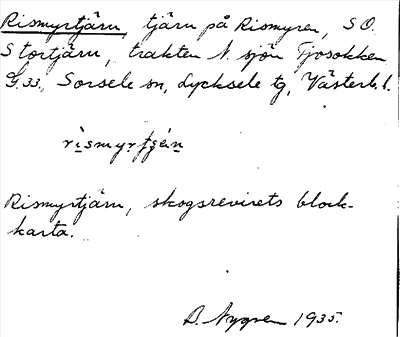 Rismyrtjärn, tjärn på Rismyren, S.O.
Stortjärn, trakten N. sjön Tjosokken
G.33., Sorsele sn, Lycksele tg, Västerb. l.
rismyrtjén
Rismyrtjärn, skogsrevirets block-
karta.
B. Nygren 1935.